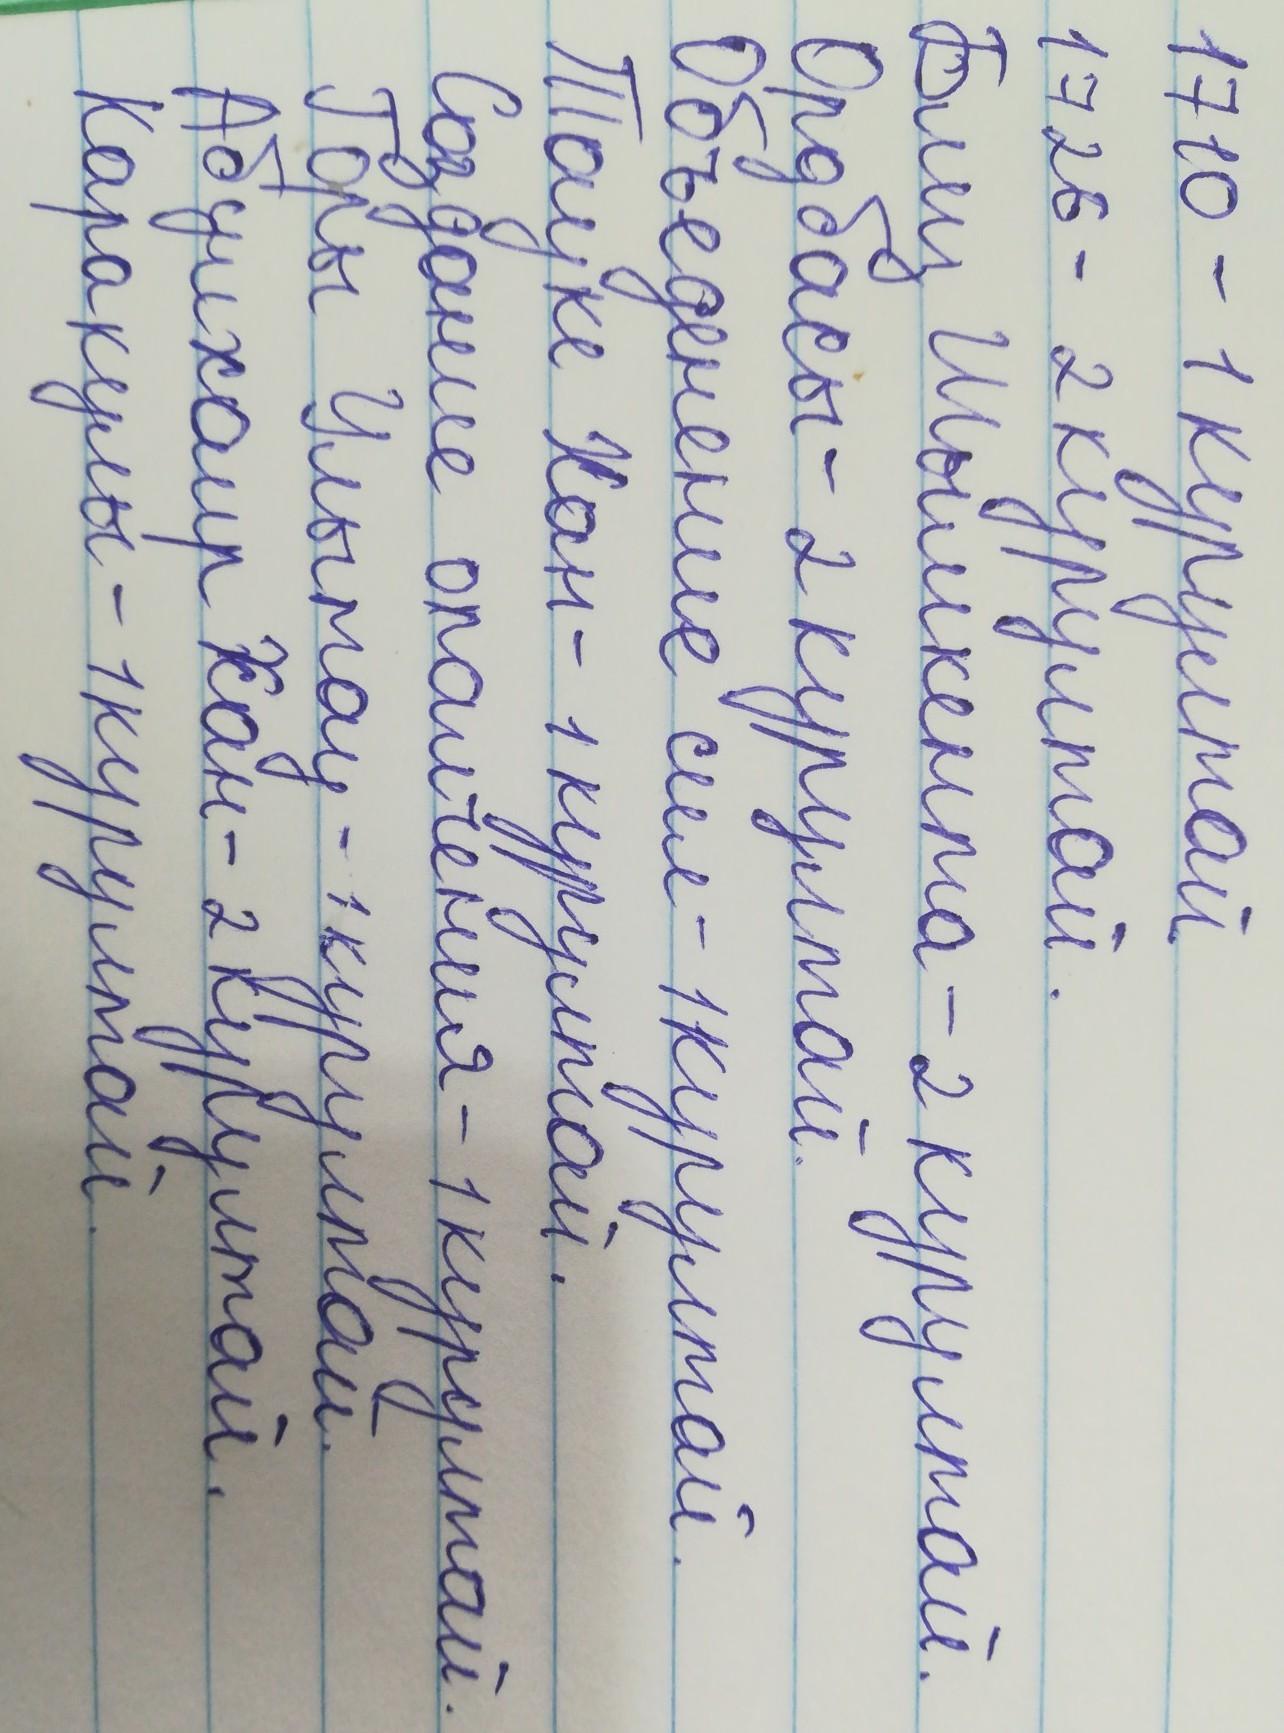 1710 - 1 курултай
1726 - 2 курултай.
Близ Шымкента - 2 курултай.
Ордбасы - 2 курултай.
Объеденение сил - 1 курултай.
Тауке Хан - 1 курултай.
Создание опалчения - 1 курултай.
Горы Улытау - 1 курултай.
Абулхаир Хан - 2 курултай.
Каракумы - 1 курултай.